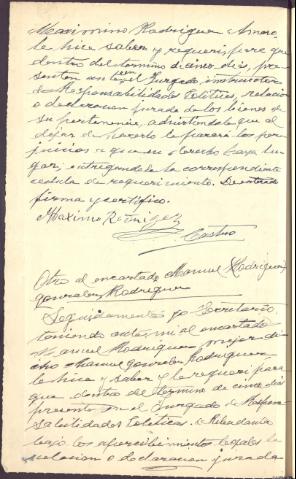 Maximino Rodriguez Amaro
le hice saber y requerí para que
dentro del término de cinco días, pre
sentara en el Juzgado, instructor
de Responsabilidades Políticas, relación
o declaracion jurada de los bienes de
su pertenencia, advirtiendole que al
dejar de hacerlo le parará los per
juicios a que en derecho haya lu
gar; entregandole la correspondiente
cedula de requerimiento. De enterado
firma y certifico.
Maximo Rodriguez
Castro
Otra al encartado Manuel Rodriguez
Gonzalez Rodriguez
Seguidamente yo Secretario
teniendo ante mi al encartado
Manuel Rodriguez, mejor di
cho Manuel Gonzalez Rodriguez
le hice saber y le requerí para
que dentro del término de cinco dias
presente en el Juzgado de Respon
sabilidades Politicas,
bajo los apercibimientos legales la
relacion o declaracion jurada